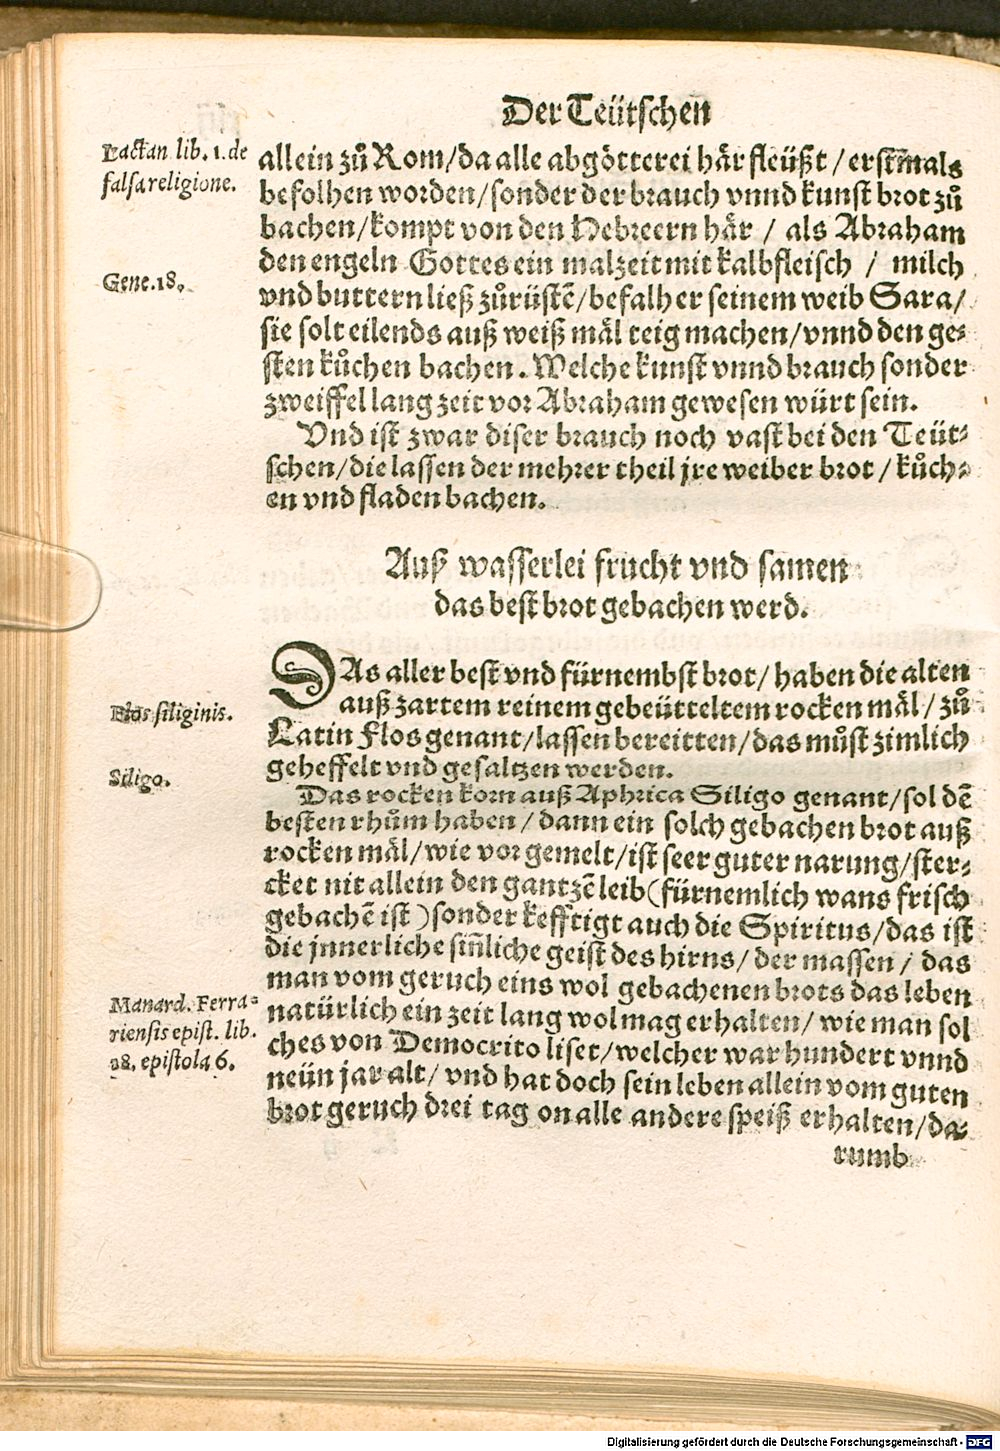 Der Teütschen
Lactan lib. 1. de
falsa religione.
allein zů Rom/da alle abgötterei här fleüßt/erstmals
befolhen worden/sonder der brauch vnnd kunst brot zů
bachen/kompt von den Hebreern här / als Abraham
Gene.18.
den engeln Gottes ein malzeit mit kalbfleisch / milch
vnd buttern ließ zůrüstẽ/befalh er seinem weib Sara/
sie solt eilends auß weiß mäl teig machen/vnnd den ge-
sten kůchen bachen. Welche kunst vnnd brauch sonder
zweiffel lang zeit vor Abraham gewesen würt sein.
Vnd ist zwar diser brauch noch vast bei den Teüt-
schen/die lassen der mehrer theil jre weiber brot / kůch-
en vnd fladen bachen.
Auß wasserlei frucht vnd samen
das best brot gebachen werd.
DAs aller best vnd fürnembst brot/haben die alten
Flos siliginis.
auß zartem reinem gebeütteltem rocken mäl/zů
Latin Flos genant/lassen bereitten/das můst zimlich
Siligo.
geheffelt vnd gesaltzen werden.
Das rocken korn auß Aphrica Siligo genant/sol dẽ
besten rhům haben/dann ein solch gebachen brot auß
rocken mäl/wie vor gemelt/ist seer guter narung/ster-
cket nit allein den gantzẽ leib (fürnemlich wans frisch
gebachẽ ist) sonder kefftigt auch die Spiritus/das ist
die jnnerliche siñliche geist des hirns/der massen / das
man vom geruch eins wol gebachenen brots das leben
Manard. Ferra-
riensis epist. lib.
18. epistola 6.
natürlich ein zeit lang wol mag erhalten/ wie man sol
ches von Democrito liset/welcher war hundert vnnd
neün jar alt/ vnd hat doch sein leben allein vom guten
brot geruch drei tag on alle andere speiß erhalten/da-
rumb
Digitalisierung gefördert durch die Deutsche Forschungsgemeinschaft - DFG